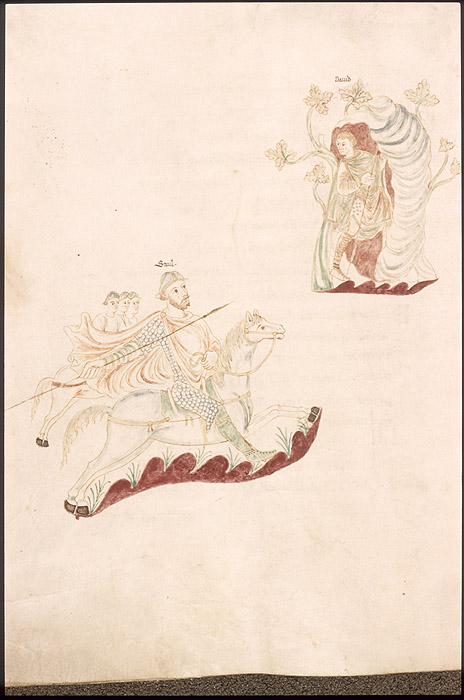 Dauid
Saul.